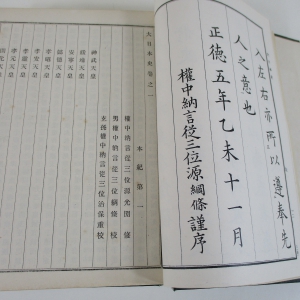 入左右亦所以遵奉先
人之意也
正德五年乙未十一月
權中納言從三位源綱條謹序
大日本史卷之一
本紀第一
權中納言從三位源光圀修
男權中納言從三位綱條校
玄孫權中納言從三位治保重校
神武天皇
綏靖天皇
安寧天皇
懿德天皇
孝昭天皇
孝安天皇
孝靈天皇
孝元天皇
開化天皇